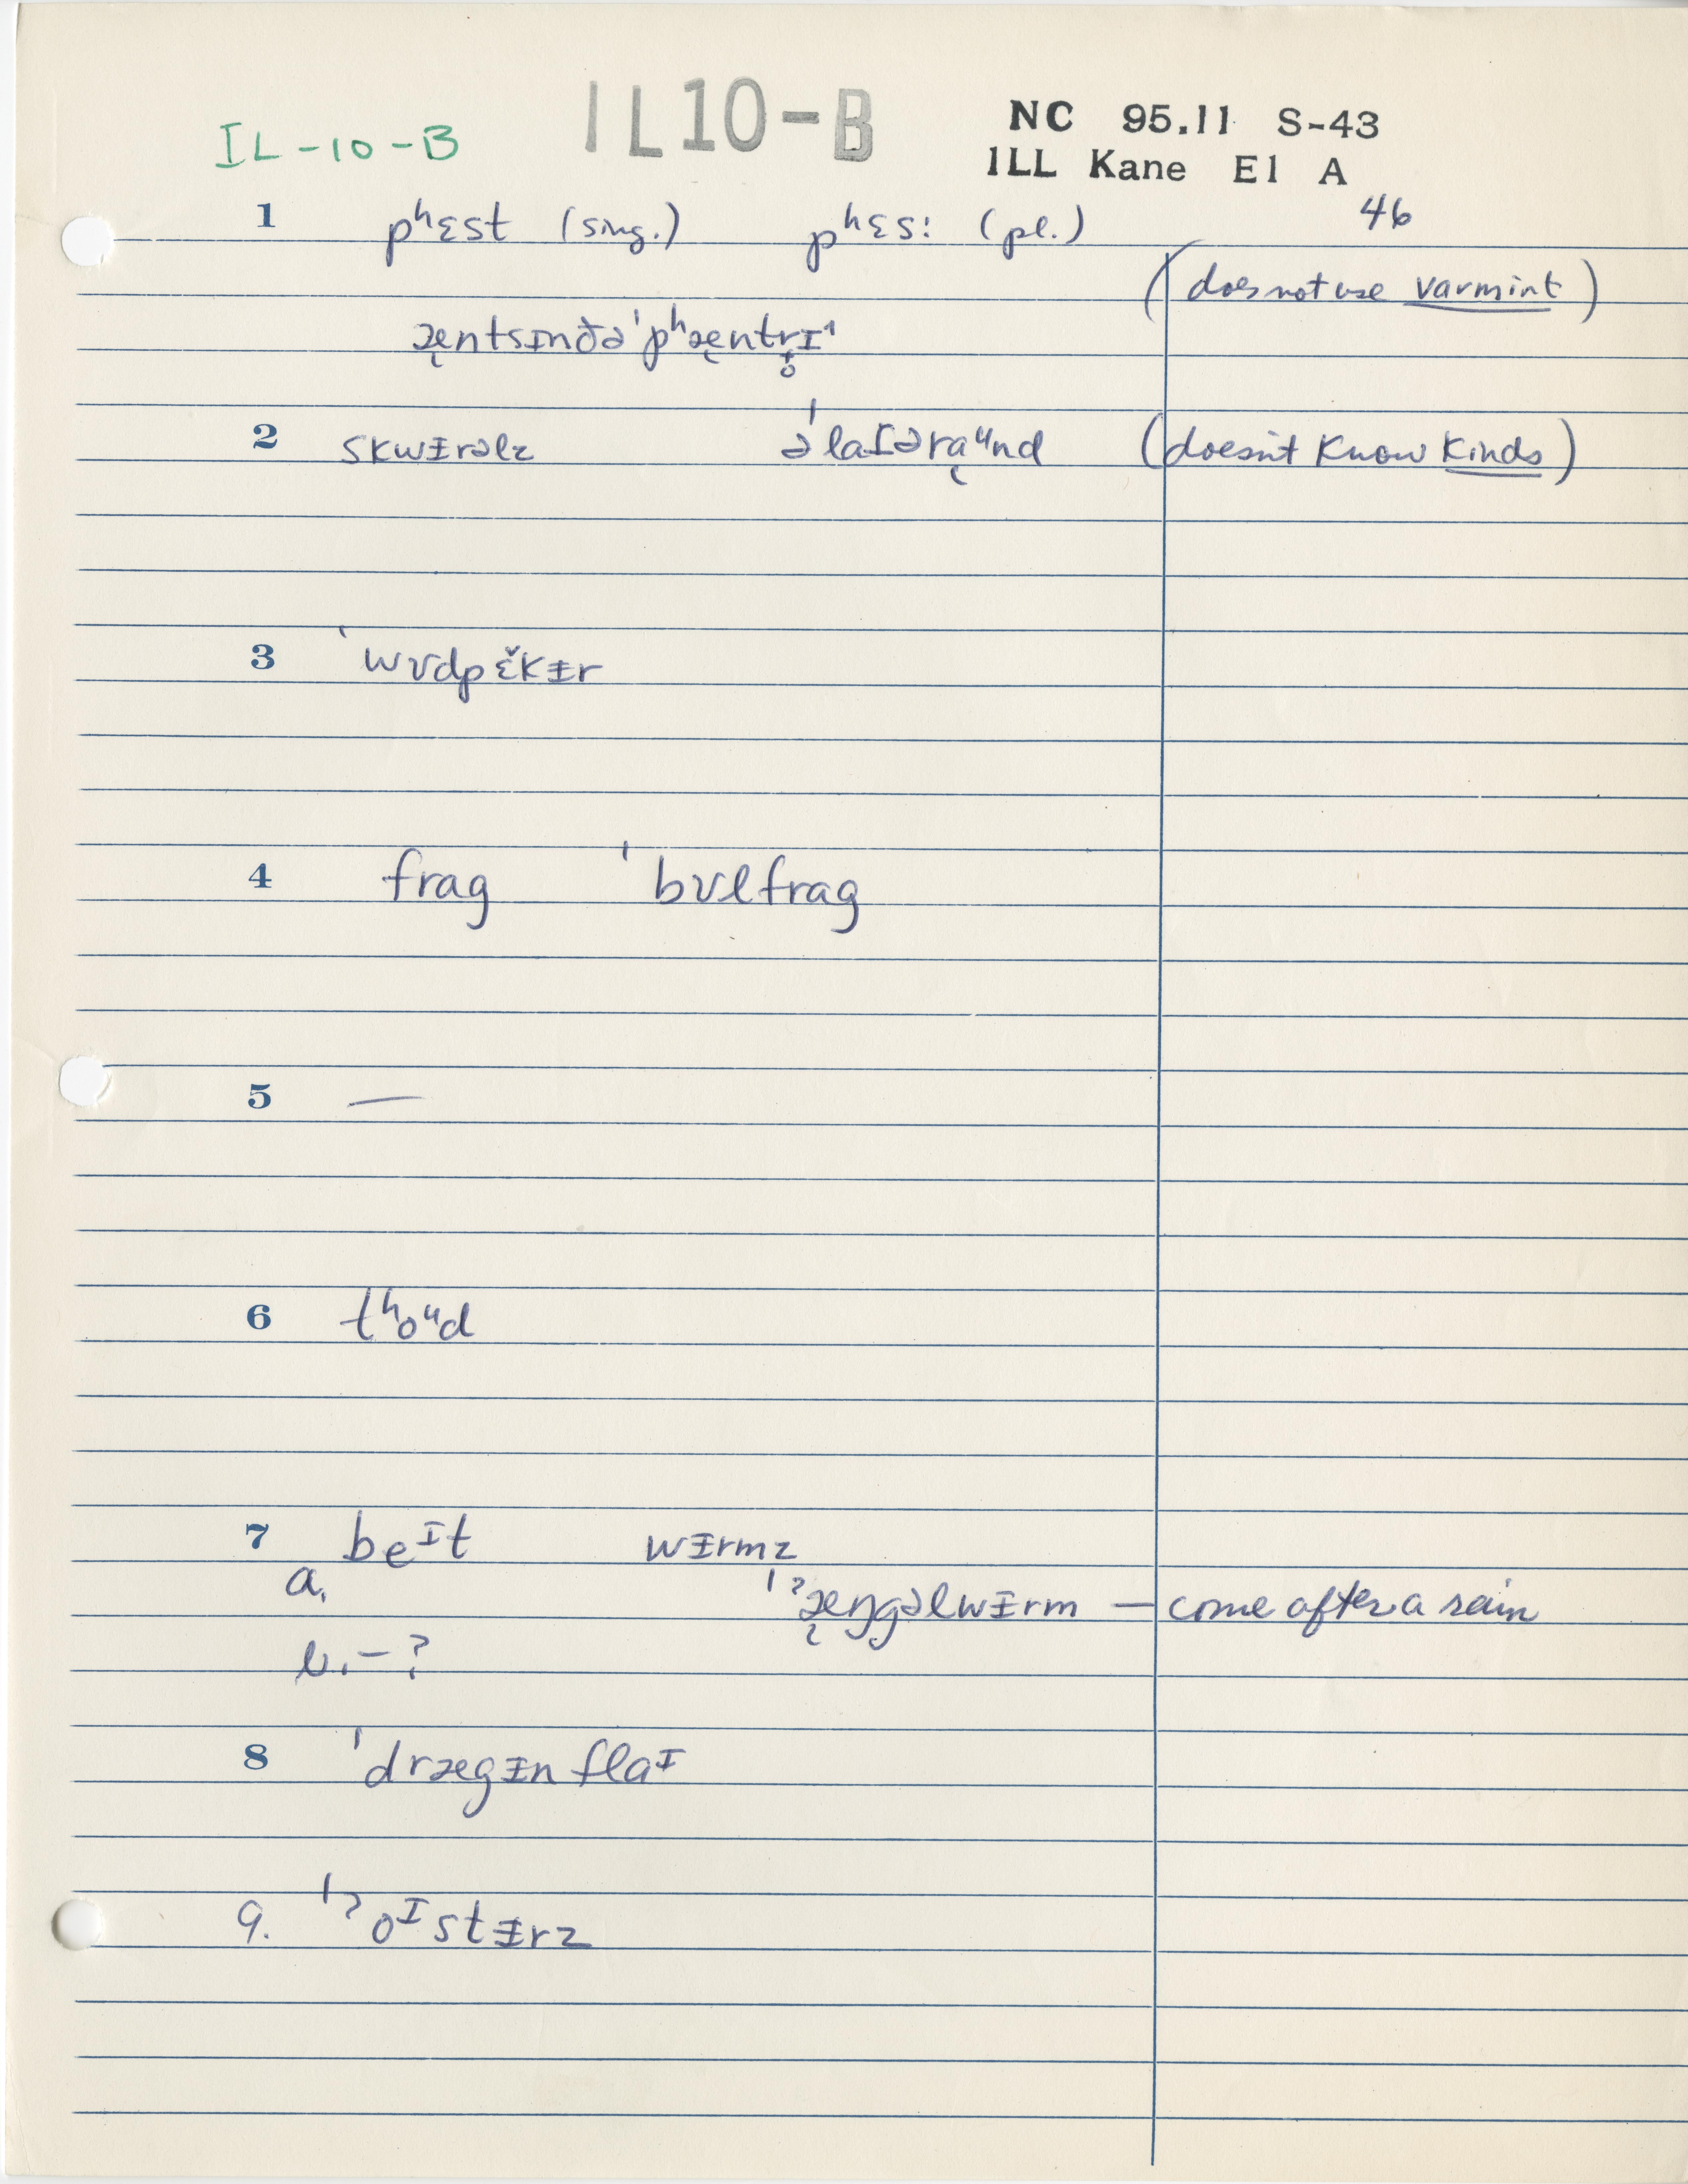 IL-10-B IL10-B NC 95.11 S-43
ILL Kane E1 A
46
1 pʰɛst (sing.) pʰɛs: (pl.)
(does not use varmint)
æ̨ntsɪnðəˈpʰæ̨ntr̥ɪ˔
2 skwɨrəlz əˈlaɾərąᵘnd (doesn't know kinds)
3 ˈwʊdpɛ̌kɨr
4 frag ˈbʊlfrag
5 —
6 tʰoᵘd
7 beᶦt wɨrmz
a. ˈˀæ̨ŋgəlwɨrm — come after a rain
b. – ?
8 ˈdrægɨnflaᶦ
9. ˈˀoᶦstɨrz